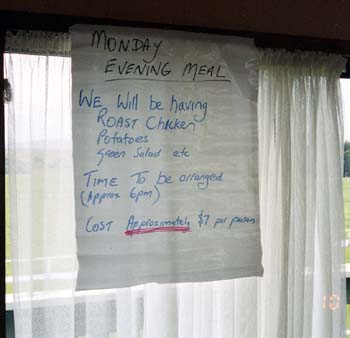 MONDAY
EVENING MEAL
WE Will be having
ROAST Chicken
Potatoes
Green Salad etc
TIME To be arranged
(Approx 6pm)
COST Approximately $7 per person